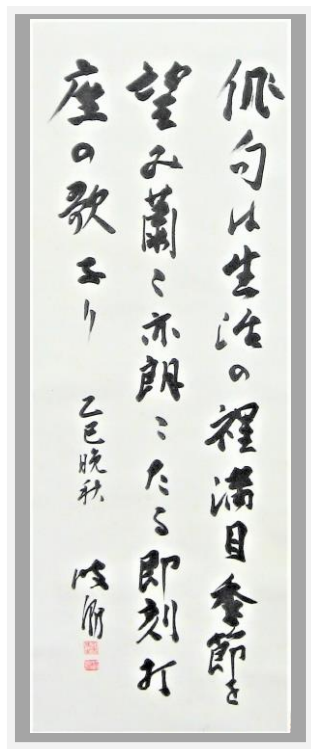 俳句は生活の裡満目季節を
望み蕭々亦朗々たる即刻打
座の歌なり
乙巳晩秋
波郷